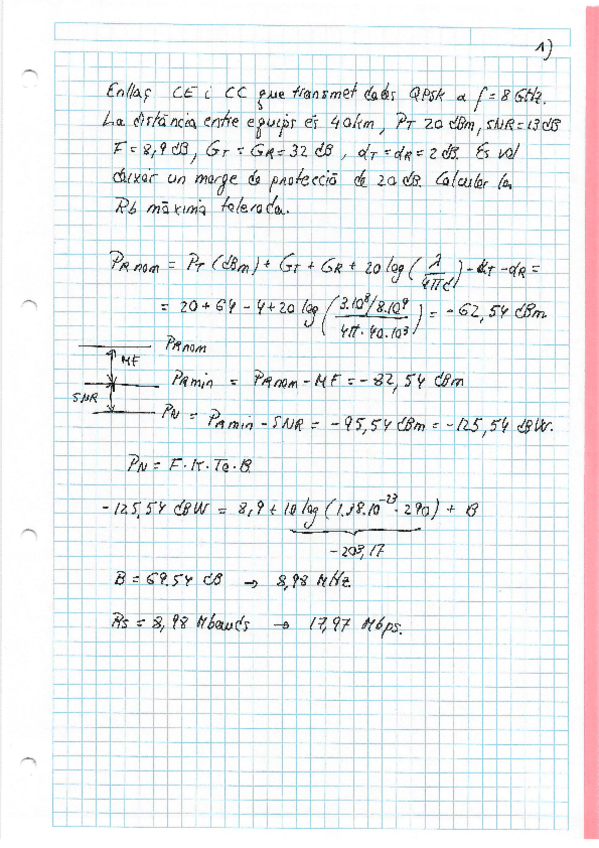 1)
Enllaç CE i CC que transmet dades QPSK a f = 8 GHz.
La distància entre equips és 40km, PT 20 dBm, SNR = 13 dB
F = 8,9 dB, GT = GR = 32 dB, αT = αR = 2 dB. Es vol
deixar un marge de protecció de 20 dB. Calcular la
Rb màxima tolerada.
PRnom = PT (dBm) + GT + GR + 20 log (λ / 4πd) - αT - αR =
= 20 + 64 - 4 + 20 log (3.10^8/8.10^9 / 4π. 40.10^3) = -62,54 dBm
PRnom
MF
PRmin = PRnom - MF = -82,54 dBm
SNR
PN = PRmin - SNR = -95,54 dBm = -125,54 dBW.
PN = F. K. To. B
-125,54 dBW = 8,9 + 10 log (1.38.10^-23 . 290) + B
-203,17
B = 69.54 dB → 8,98 MHz
Rs = 8,98 Mbauds → 17,97 Mbps.